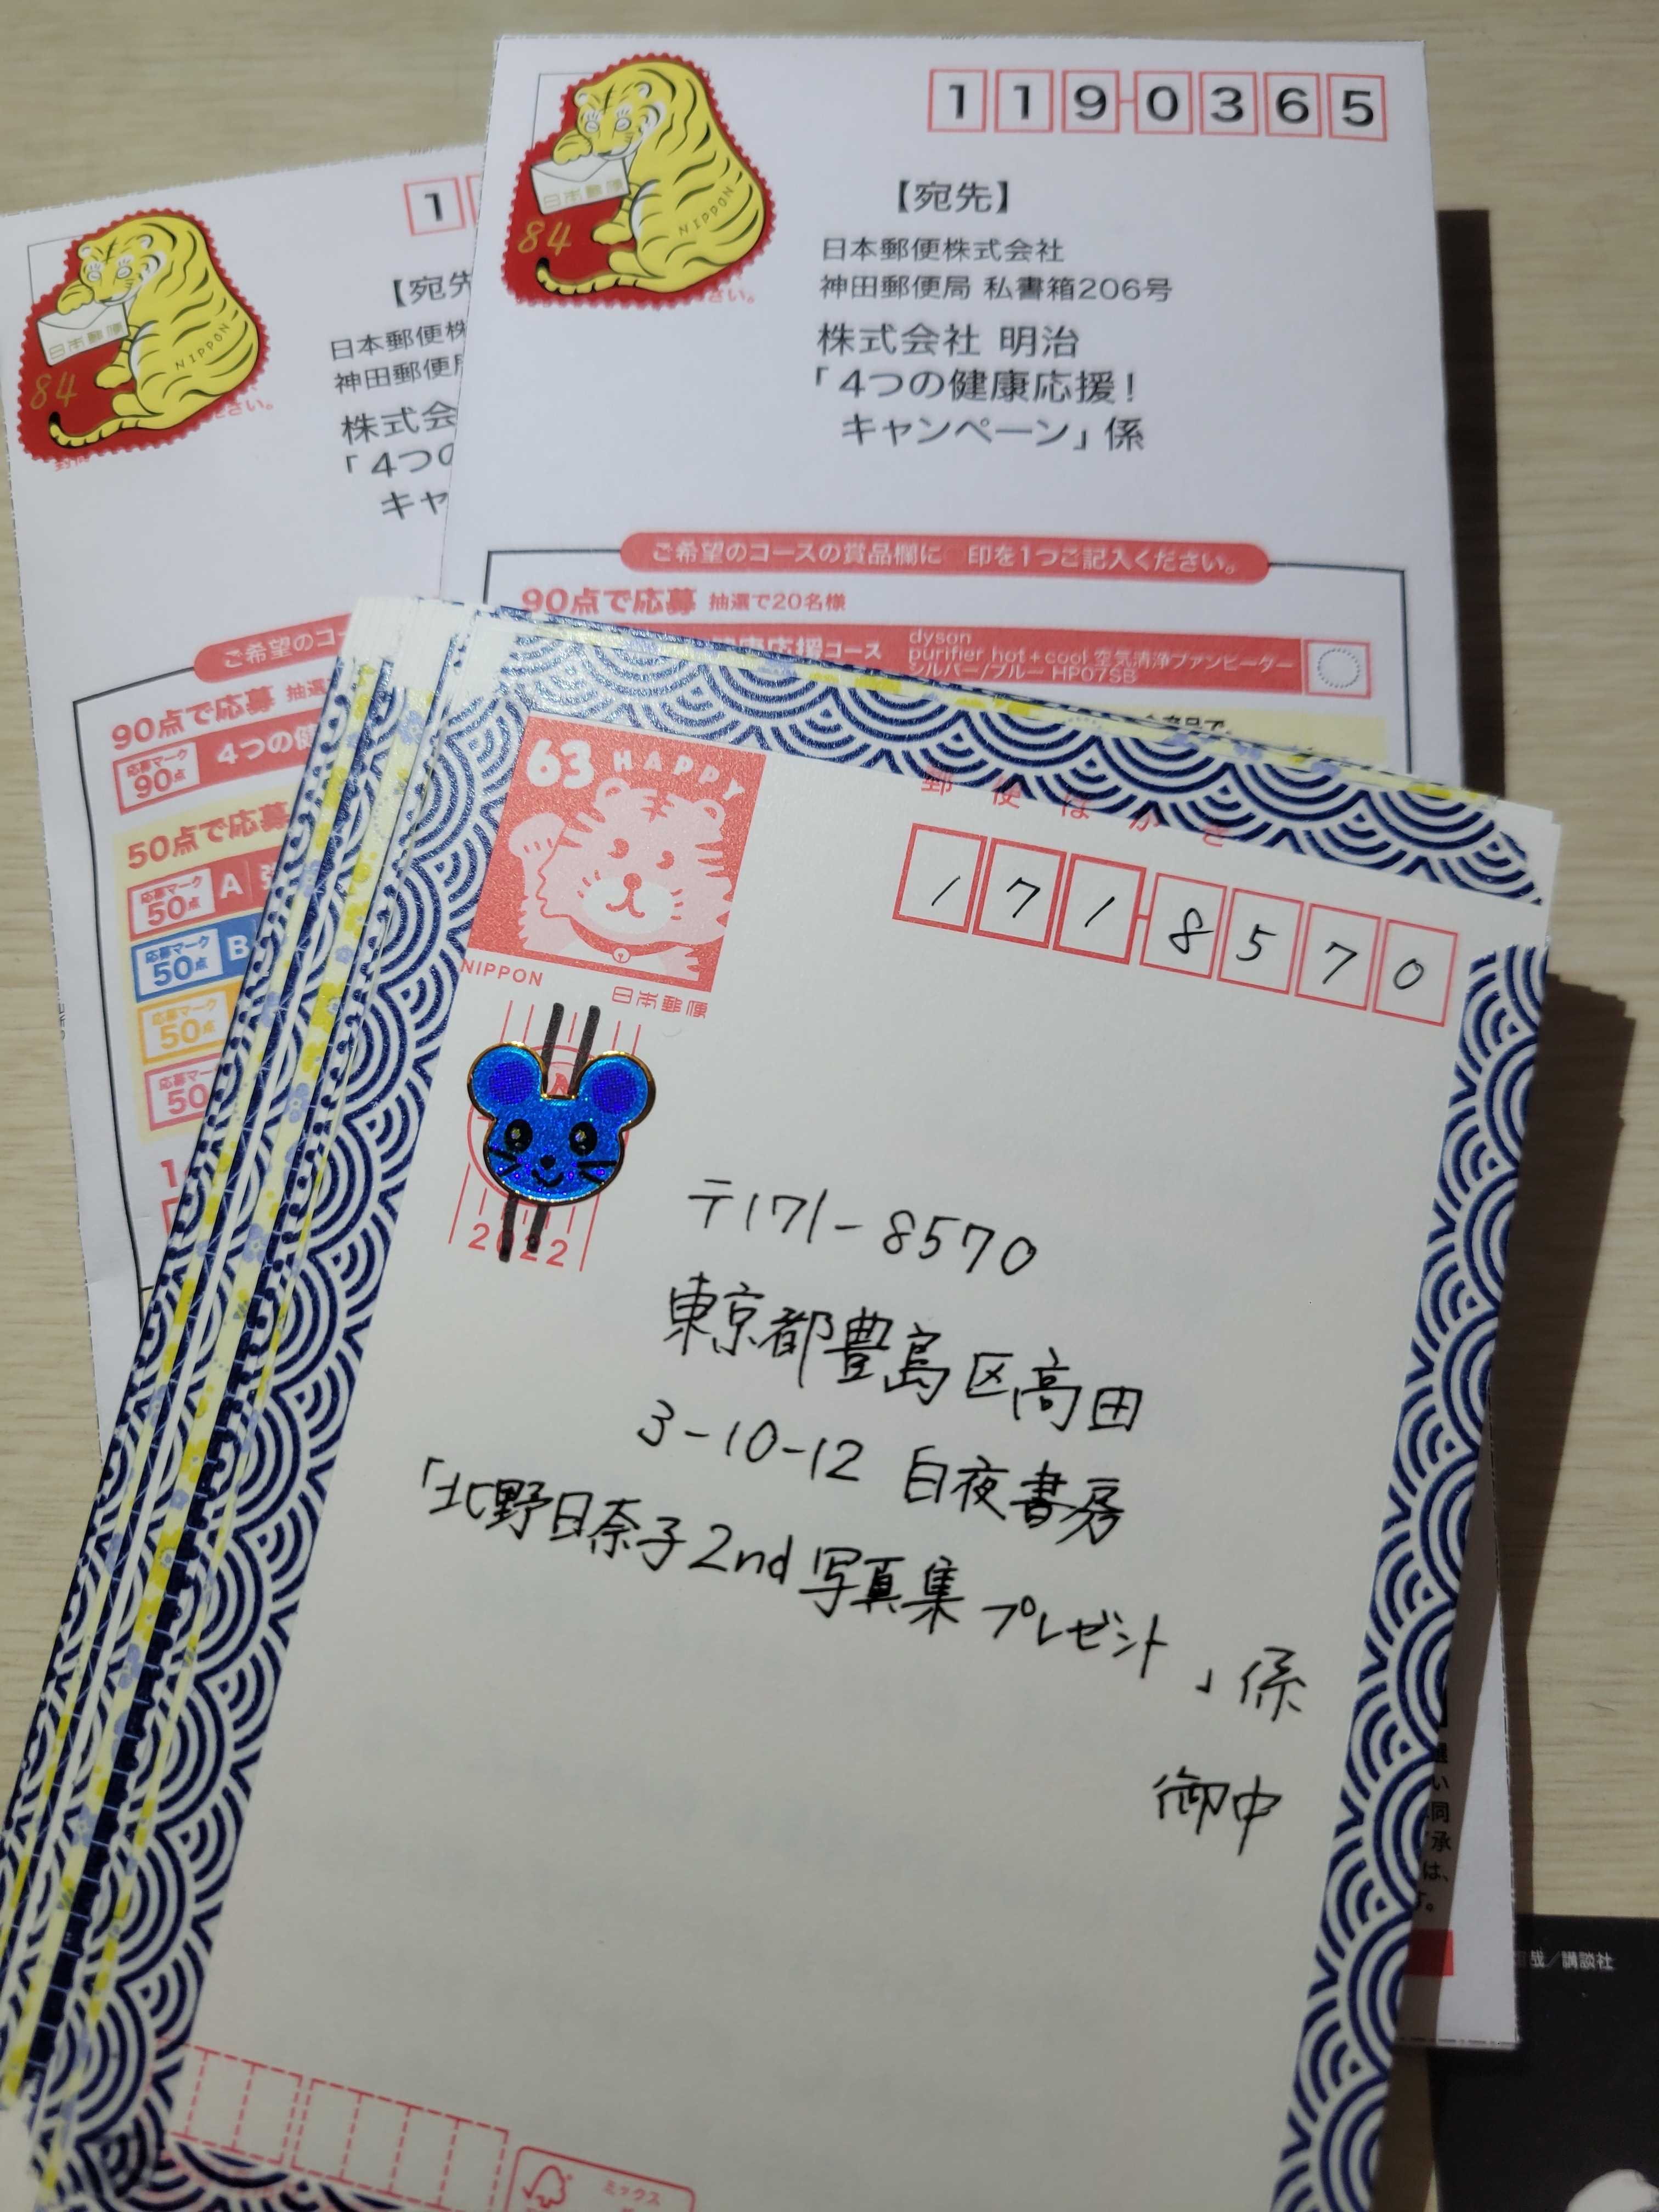 1190365
【宛先】
日本郵便株式会社
神田郵便局 私書箱206号
株式会社 明治
「4つの健康応援!
キャンペーン」係
日本郵便
84
NIPPON
さい。
ご希望のコースの賞品欄に 印を1つご記入ください。
90点で応募 抽選で20名様
健康応援コース
dyson
purifier hot+cool 空気清浄ファンヒーター
シルバー/ブルー HP07SB
1
【宛先
日本郵便株
神田郵便局
株式会
「4つの
キャ
日本郵便
84
NIPPON
ださい。
ご希望のコー
90点で応募 抽選
応募マーク
90点
4つの健
50点で応募
応募マーク
50点
A
応募マーク
50点
B
応募マーク
50点
応募マーク
50
63 HAPPY
NIPPON
日本郵便
郵便はがき
1718570
2022
〒171-8570
東京都豊島区高田
3-10-12 白夜書房
「北野日奈子2nd写真集プレゼント」係
御中
い
同
承
は、
す。
哉/講談社
ミックス